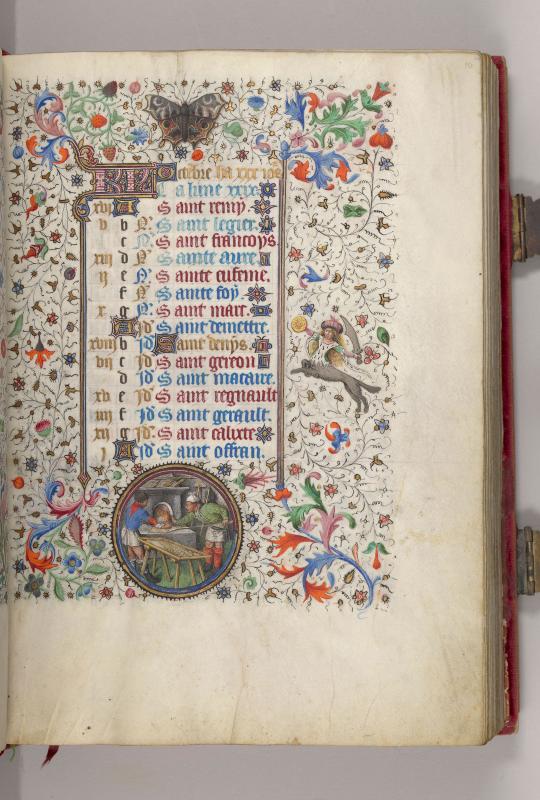 KL Octobre ha xxxi iors
La lune xxix
xvi A Saint remy.
v b N. Saint legier.
c N. Saint francoys.
xiii d N. Sainte auree
ii e N. Sainte custeme.
f N. Sainte foy
x g N. Saint marc.
A Id Saint demettre.
xviii b Id Saint denys.
vii c Id Saint gereon
d Id Saint macaire.
xv e Id Saint regnault
iiii f Id Saint gerault.
xii g Id Saint calixte
i A Id Saint offran.